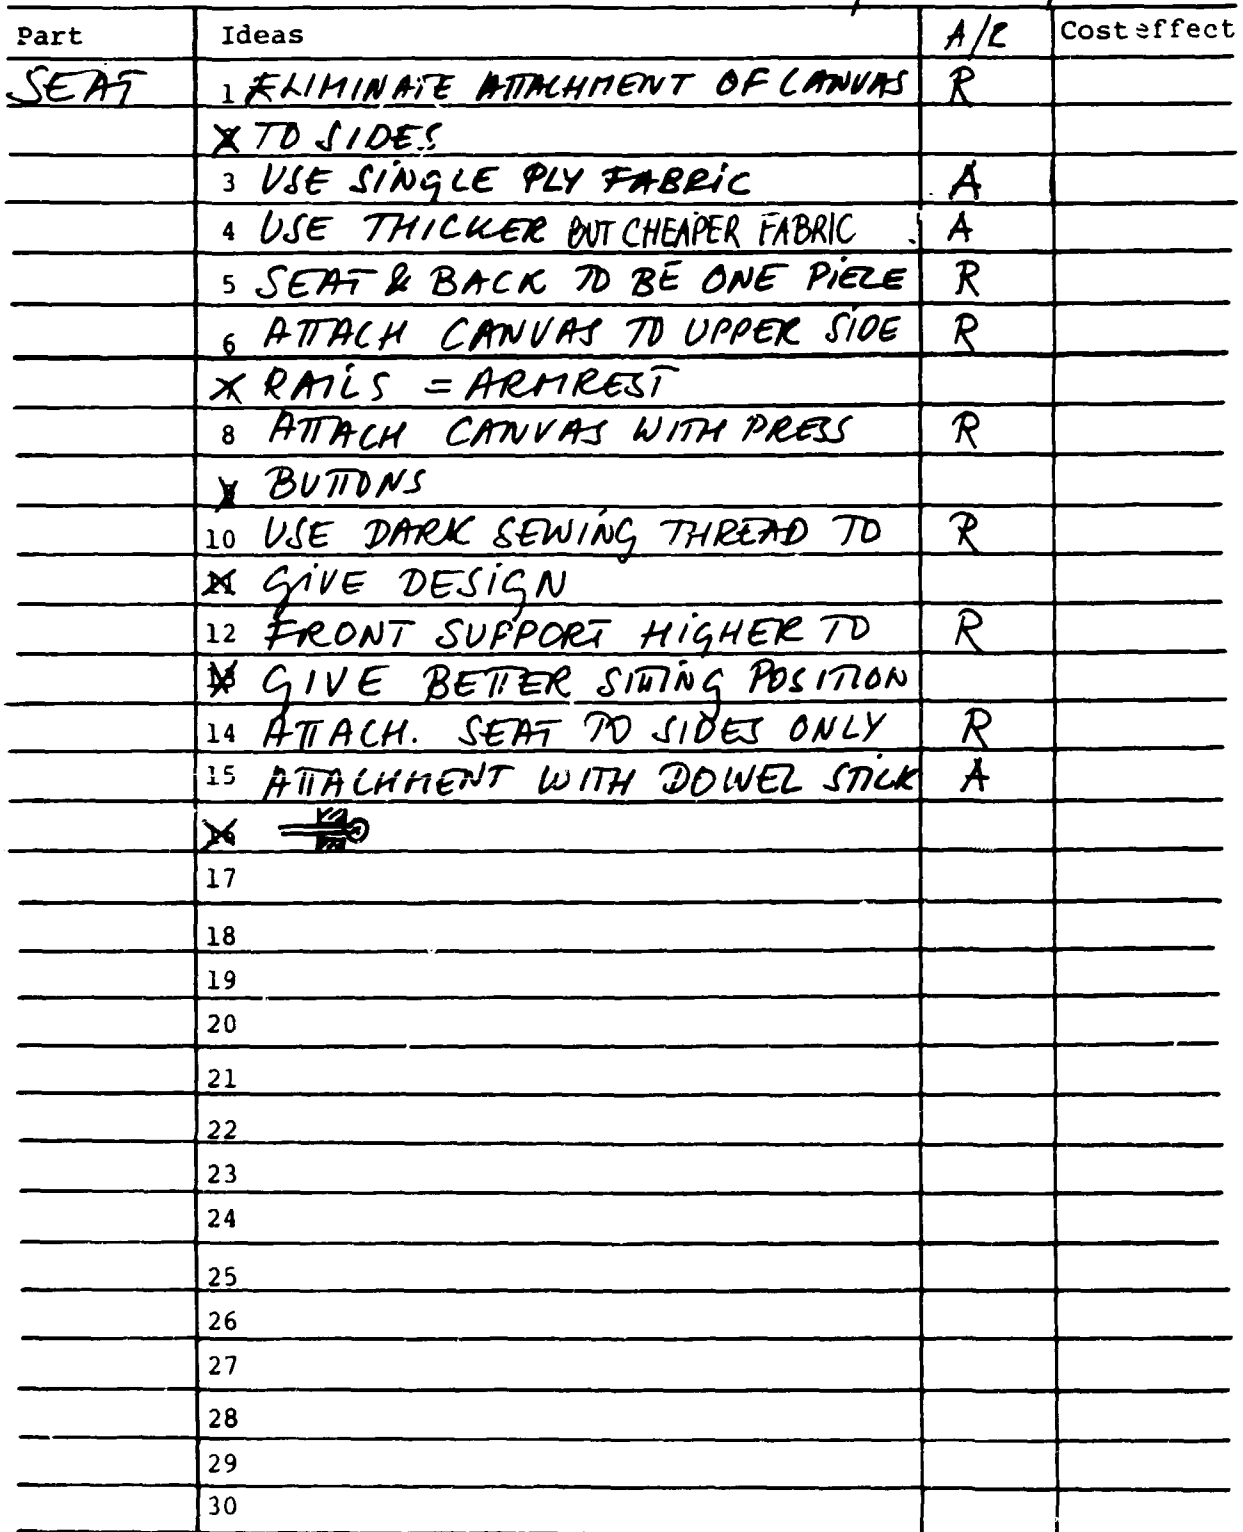 Part Ideas A/R Cost effect
SEAT 1 ELIMINATE ATTACHMENT OF CANVAS R
TO SIDES
3 USE SINGLE PLY FABRIC A
4 USE THICKER BUT CHEAPER FABRIC A
5 SEAT & BACK TO BE ONE PIECE R
6 ATTACH CANVAS TO UPPER SIDE R
RAILS = ARMREST
8 ATTACH CANVAS WITH PRESS R
BUTTONS
10 USE DARK SEWING THREAD TO R
11 GIVE DESIGN
12 FRONT SUPPORT HIGHER TO R
13 GIVE BETTER SITTING POSITION
14 ATTACH. SEAT TO SIDES ONLY R
15 ATTACHMENT WITH DOWEL STICK A
16
17
18
19
20
21
22
23
24
25
26
27
28
29
30